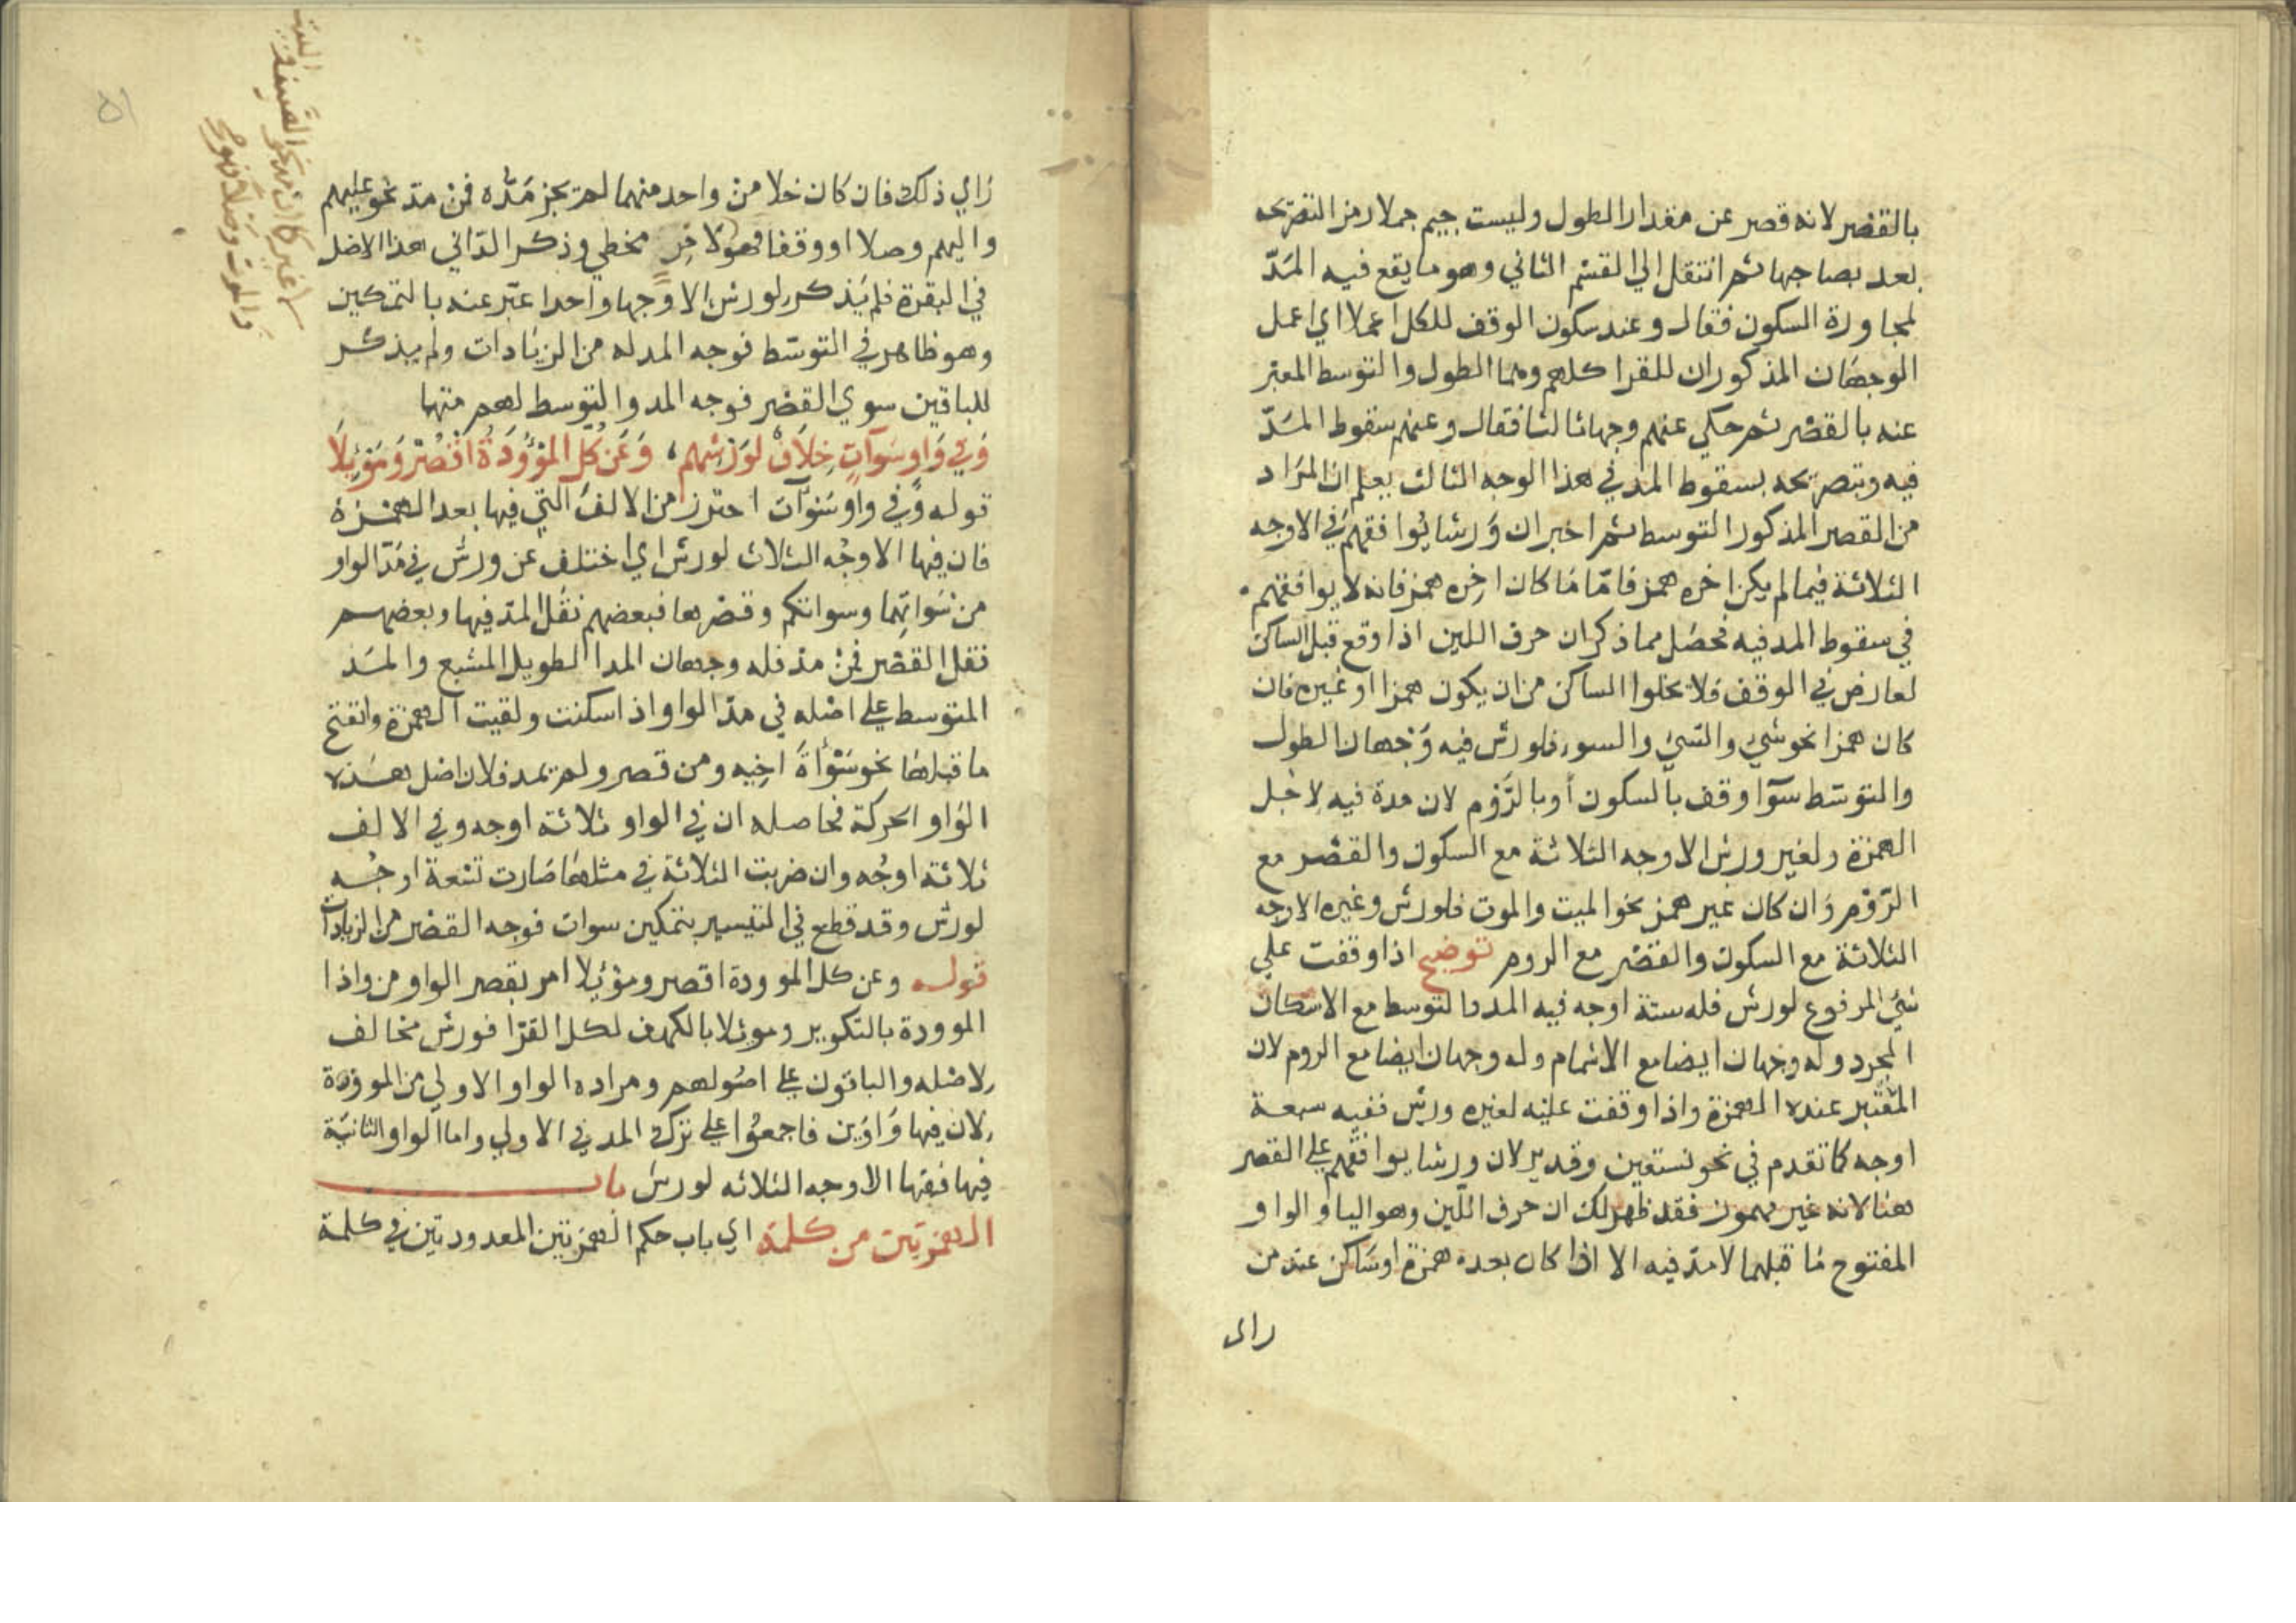 بالقصر لانه قصر عن مقدار الطول وليست جيم جملا رمز التصريحه
بعد بصاحبها ثم انتقل الي القسم الثاني وهو ما يقع فيه المدّ
لمجاورة السكون فقال وعند سكون الوقف للكل اعملا اي اعمل
الوجهان المذكوران للقرا كلهم وهما الطول والتوسط المعبر
عنه بالقصر ثم حكي عنهم وجها ثالثا فقال وعنهم سقوط المدّ
فيه وبتصريحه بسقوط المد في هذا الوجه الثالث يعلم ان المراد
من القصر المذكور التوسط ثم اخبر ان ورشا يوافقهم في الاوجه
الثلاثة فيما لم يكن اخره همز فامّا ما كان اخره همز فانه لا يوافقهم
في سقوط المد فيه فحصل مما ذكر ان حرف اللين اذا وقع قبل الساكن
لعارض في الوقف فلا يخلوا الساكن من ان يكون همزا او غيره فان
كان همزا نحو شيء والشيء والسوء فلورش فيه وجهان الطول
والتوسّط سوآ وقف بالسكون أو بالرَّوم لان مدة فيه لاجل
الهمزة ولغير ورش الاوجه الثلاثة مع السكون والقصر مع
الرّوم وان كان غير همز نحو الميت والموت فلورش وغيره الاوجه
الثلاثة مع السكون والقصر مع الروم توضيح اذا وقفت علي
شيء المرفوع لورش فله ستة اوجه فيه المد والتوسط مع الاسكان
المجرد وله وجهان ايضا مع الاشمام وله وجهان ايضا مع الروم لان
المعتبر عنده الهمزة واذا وقفت عليه لغير ورش ففيه سبعة
اوجه كما تقدم في نحو نستعين وقد يرلان ورشا يوافقهم علي القصر
هنا لانه غير مهموز فقد ظهر لك ان حرف اللّين وهو اليا والواو
المفتوح ما قبلهما لا مدّ فيه الا اذا كان بعده همزة او ساكن عند من
راى
راي ذلك فان كان خلا من واحد منهما لم يجز مدّه فمن مدّ نحو عليهم
واليهم وصلا او وقفا فهو لا حن مخطي وذكر الدّاني هذا الاصل
في البقرة فلم يذكر لورش الا وجها واحدا عبّر عنه بالتمكين
وهو ظاهر في التوسّط فوجه المد له من الزيادات ولم يذكر
للباقين سوي القصر فوجه المد والتوسط لهم منها
وَفي وَاوِ سَوآتٍ خِلَافٌ لوَرشِهم، وَعَن كُلّ المَوْؤُودَةُ اقْصُرْ وَمَوْئِلَا
قوله وفي واو سَوآت احترز من الالف التي فيها بعد الهمزة
فان فيها الاوجُه الثلاث لورش اي اختلف عن ورش في مَدّ الواو
من سَواتِهما وسواتكم وقصرها فبعضهم نقل المدّ فيها وبعضهم
نقل القصر فمن مدّ فله وجهان المد الطويل المشبع والمد
المتوسط علي اصله في مدّ الواو اذا سكنت ولقيت الهمزة وانفتح
ما قبلها نحو سَوْأَةَ اخِيه ومن قصر ولم يمد فلان اصل هذه
الواو الحركة فحاصله ان في الواو ثلاثة اوجه وفي الالف
ثلاثة اوجُه وان ضربت الثلاثة في مثلها صارت تسعة اوجُه
لورش وقد قطع في التيسير بتمكين سوات فوجه القصر من الزيادات
قوله وعن كل الموودة اقصر وموئلا امر بقصر الواو من واذا
الموودة بالتكوير وموئلا بالكهف لكل القرّا فورش مخالف
لاصله والباقون علي اصولهم ومراده الواو الاولي من الموؤدة
لان فيها وَاوَين فاجمعُوا علي ترك المد في الاولي واما الواو الثانية
فيها ففيها الاوجه الثلاثه لورش باب
الهمزتين من كلمة اي باب حكم الهمزتين المعدودتين في كلمة
والموت وصلا فهو